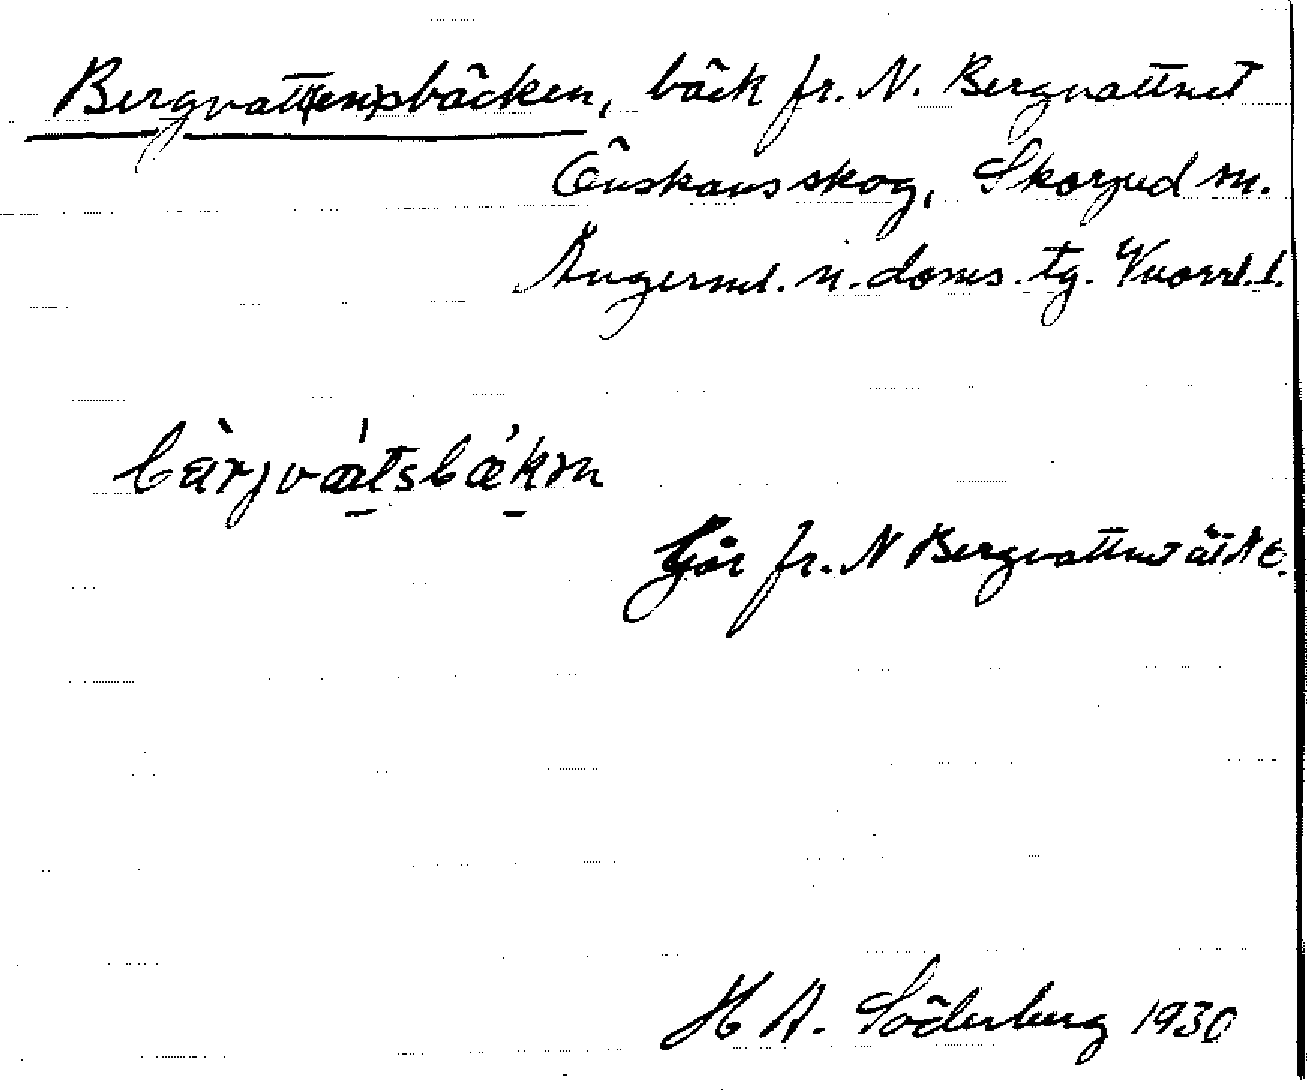 Bergvatt(en)sbäcken, bäck fr. N. Bergvattnet
Önskans skog, Skorped sn.
Ångerml. n. doms. tg. Vnorrl. l.
bàrjvátsbǽkm
Går fr. N Bergvattnet åt N
H A. Söderberg 1930